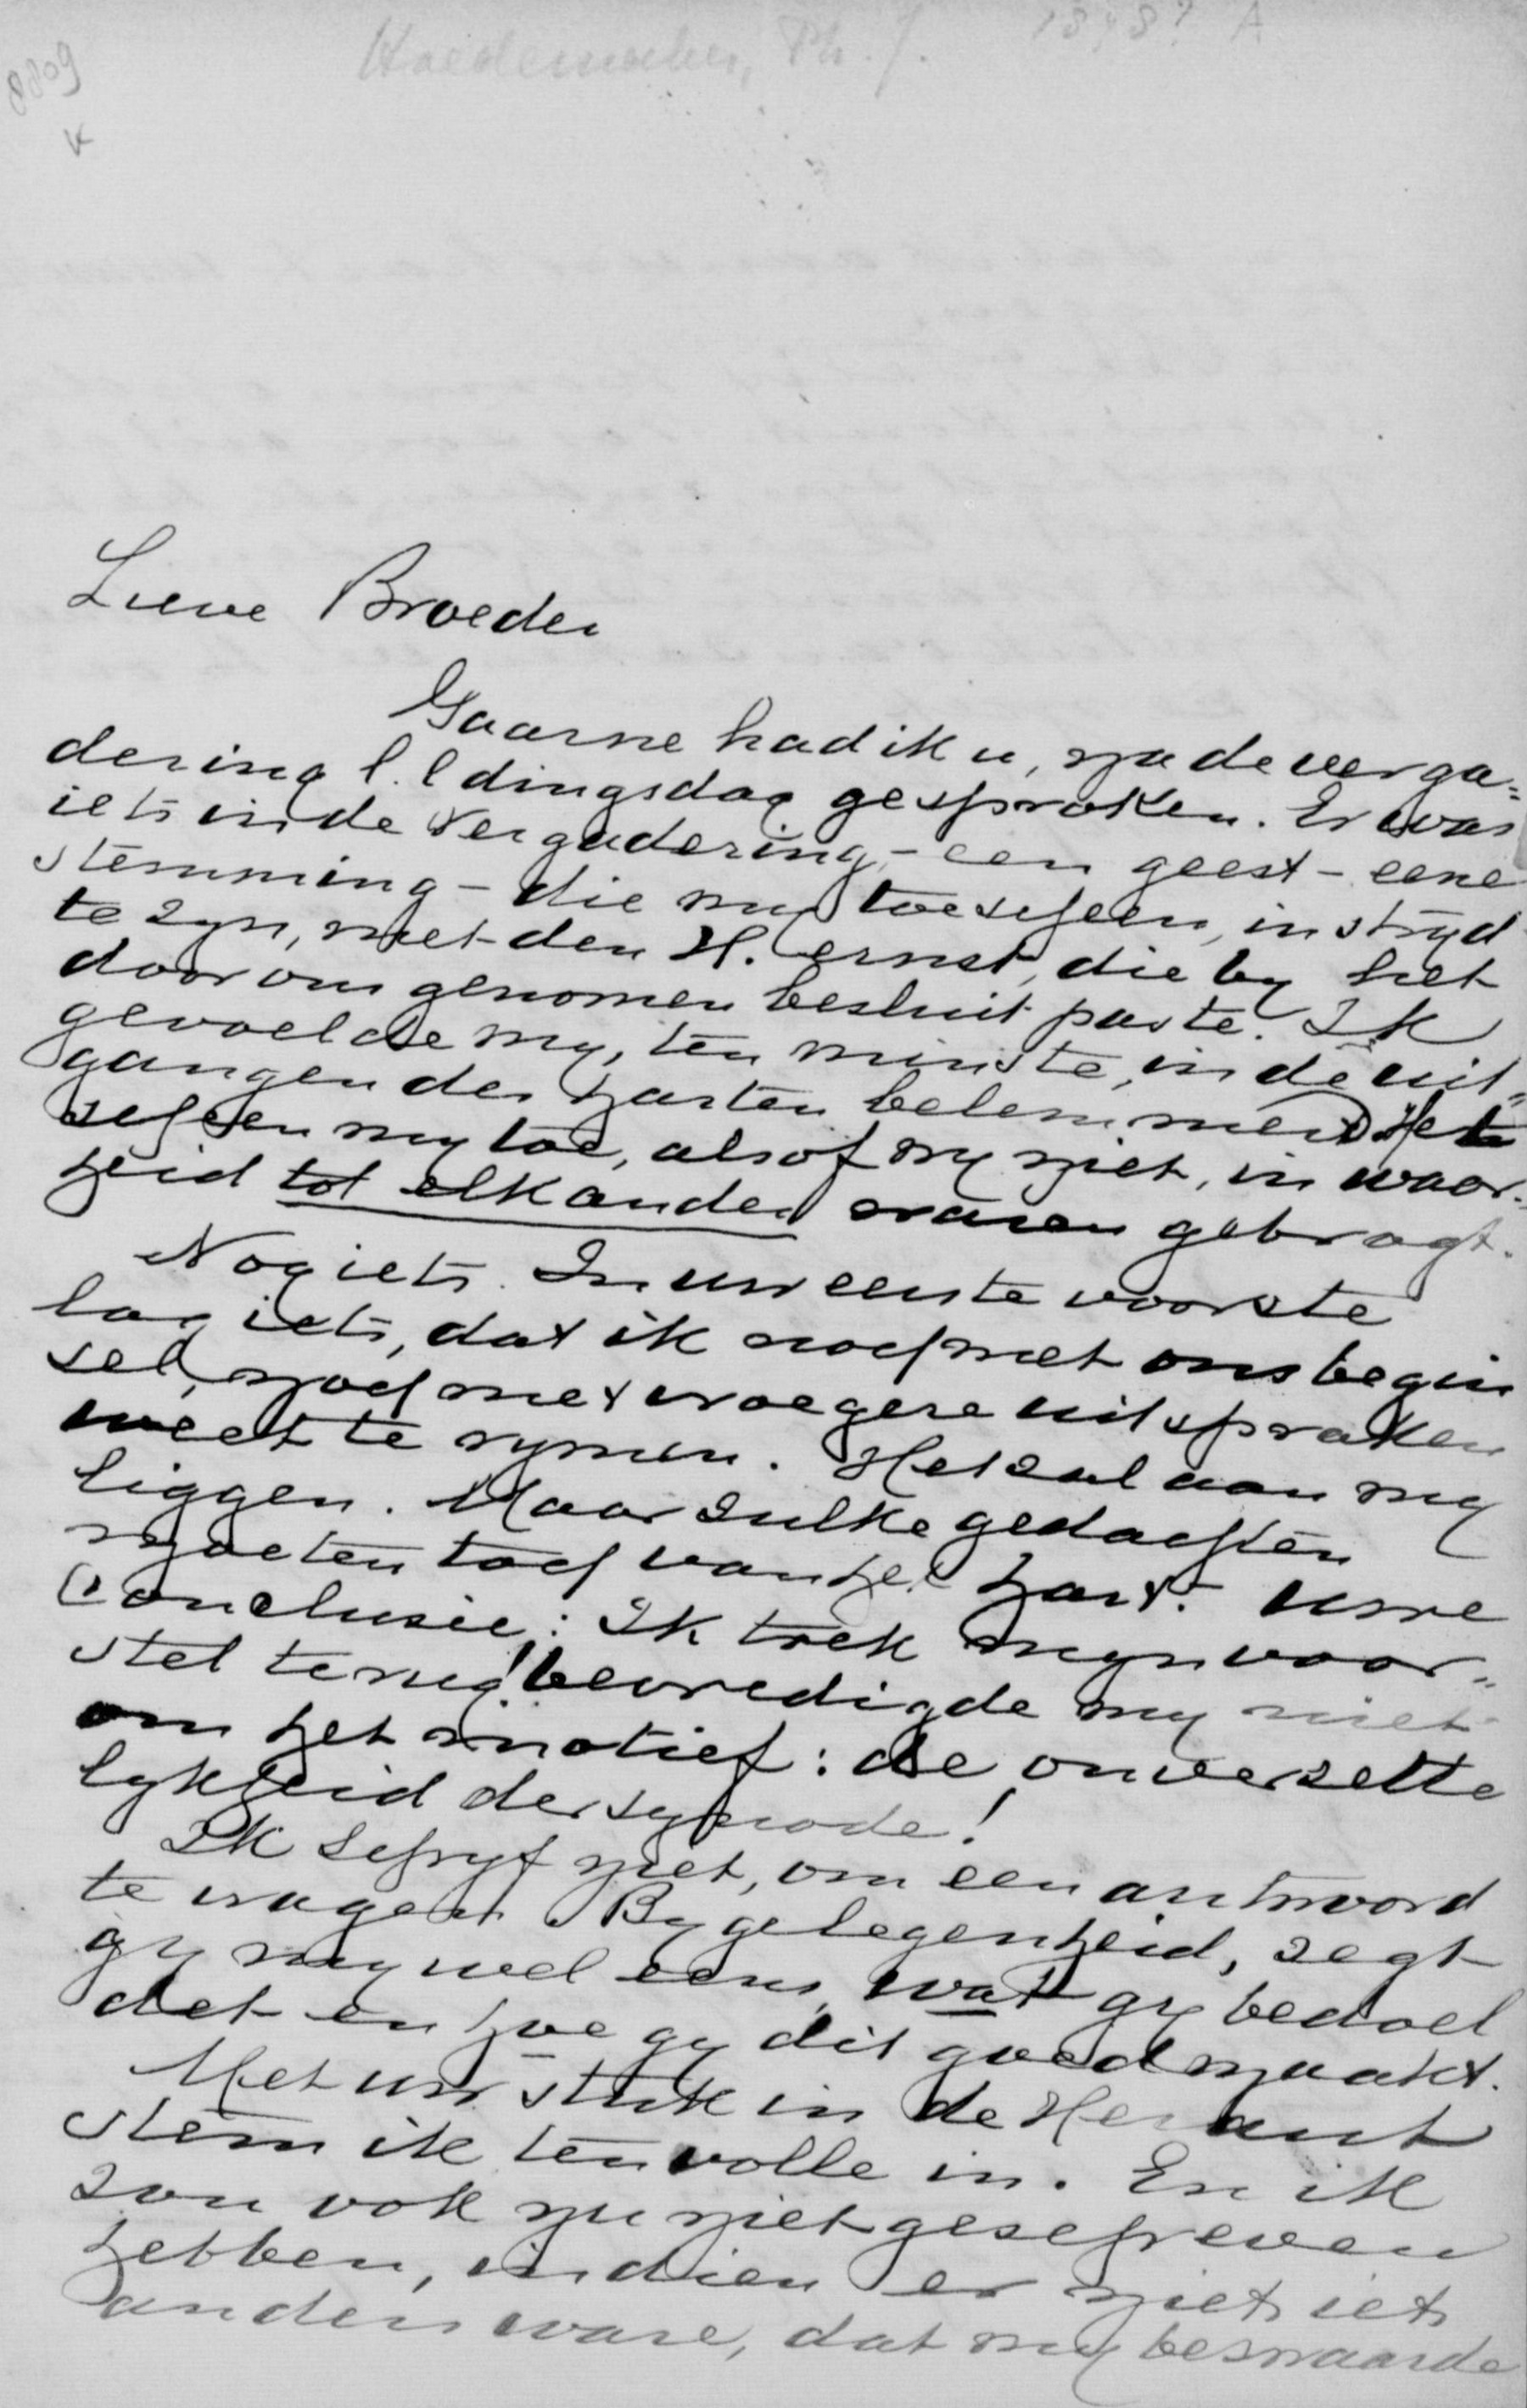 Hoedemaker, Ph. J. 1878? A
8809
K
Lieve Broeder
Gaarne had ik u, na de verga=
dering l.l dingsdag gesproken. Er was
iets in de vergadering - een geest - eene
stemming - die my toescheen, in stryd
te zyn, met den H. ernst, die by het
door ons genomen besluit paste. Ik
gevoelde my, ten minste, in de uit=
gangen des harten belemmerd. Het
scheen my toe, alsof wy niet, in waar=
heid tot elkander waren gebragt.
Nog iets. In uw eerste voorste
lag iets, dat ik noch met ons begin
sel, noch met vroegere uitspraken
weet te rymen. Het zal aan my
liggen. Maar zulke gedachten
moeten toch van het hart. Uwe
Conclusie: Ik trek myn voor=
stel terug! bevredigde my niet
om het motief: de onverzette
lykheid der synode!
Ik schryf niet, om een antwoord
te vragen. By gelegenheid, zegt
gy my wel eens, wat gy bedoel
det en hoe gy dit goedmaakt.
Met uw stuk in de Heraut
stem ik ten volle in. En ik
zou ook nu niet geschreven
hebben, indien er niet iets
anders ware, dat my bezwaarde